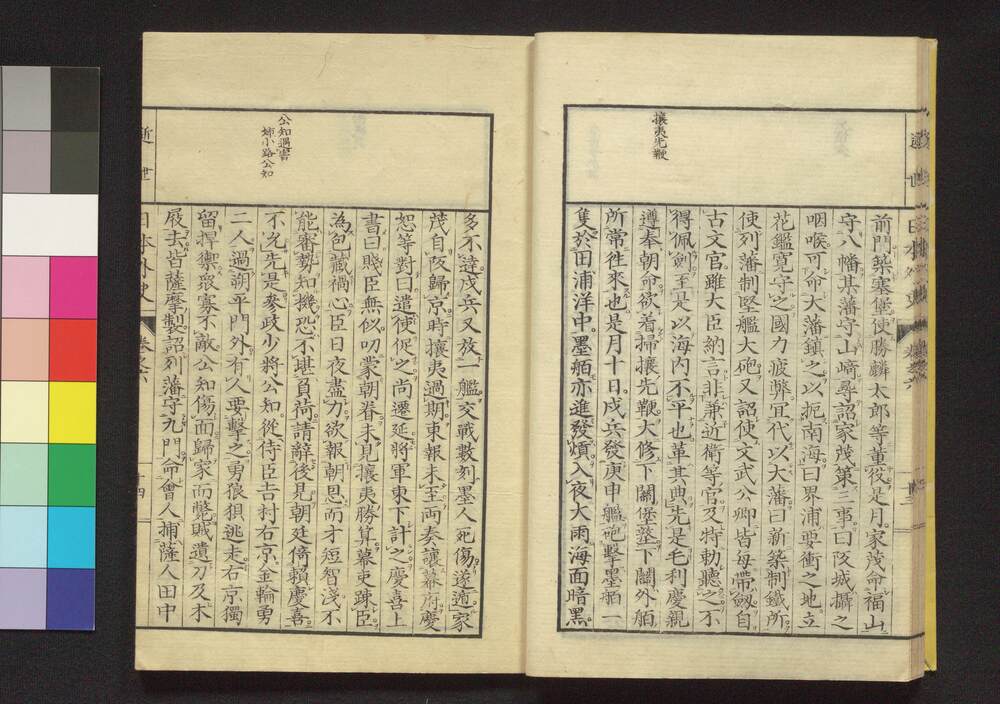 攘夷先鞭
前門築塞堡使勝麟太郎等董役是月家茂命福山
守八幡其藩守山崎尋詔家茂第三事曰阪城攝之
咽喉可命大藩鎮之以扼南海曰界浦要衝之地立
花鑑寛守之國力疲弊宜代以大藩曰新築制鐵所
使列藩制堅艦大砲又詔使文武公卿皆毎帶劔自
古文官雖大臣納言非兼近衛等官及特勅聽之不
得佩劍至是以海内不平也革其典先是毛利慶親
遵奉朝命欲着掃攘先鞭大修下關堡壘下關外舶
所常往來也是月十日戍兵發庚申艦砲擊墨舶一
隻於田浦洋中墨舶亦進發熕入夜大雨海面暗黒
公知遇害
姉小路公知
多不達戍兵又放一艦交戰數刻墨人死傷遂遁家
茂自阪歸京時攘夷過期東報未至両奏讓幕府慶
恕等對曰遣使促之尚遷延將軍東下計之慶喜上
書曰賤臣無似叨蒙朝眷未見攘夷勝算幕吏疎臣
為包藏禍心臣日夜盡力欲報朝恩而才短智淺不
能審勢知機恐不堪負荷請辭後見朝廷倚頼慶喜
不允先是參政少將公知從侍臣吉村右京金輪勇
二人過朔平門外有人要擊之勇狼狽逃走右京獨
留捍禦衆寡不敵公知傷面歸家而斃賊遺刀及木
屐去皆薩摩製詔列藩守九門命會人捕薩人田中
近世
日本外史
卷之六
十四